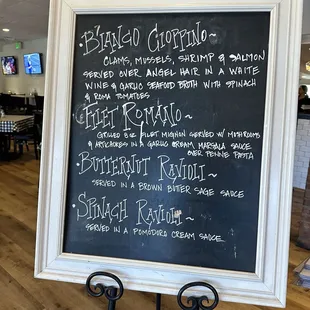 · B'iango Cioppino ~
Clams, Mussels, Shrimp & Salmon
served over angel hair in a white
wine & garlic seafood broth with spinach
& roma tomatoes
· Filet Romano ~
Grilled 8oz filet mignon served w/ mushrooms
& artichokes in a garlic cream marsala sauce
over penne pasta
· Butternut Ravioli ~
served in a brown butter sage sauce
· Spinach Ravioli ~
served in a pomodoro cream sauce